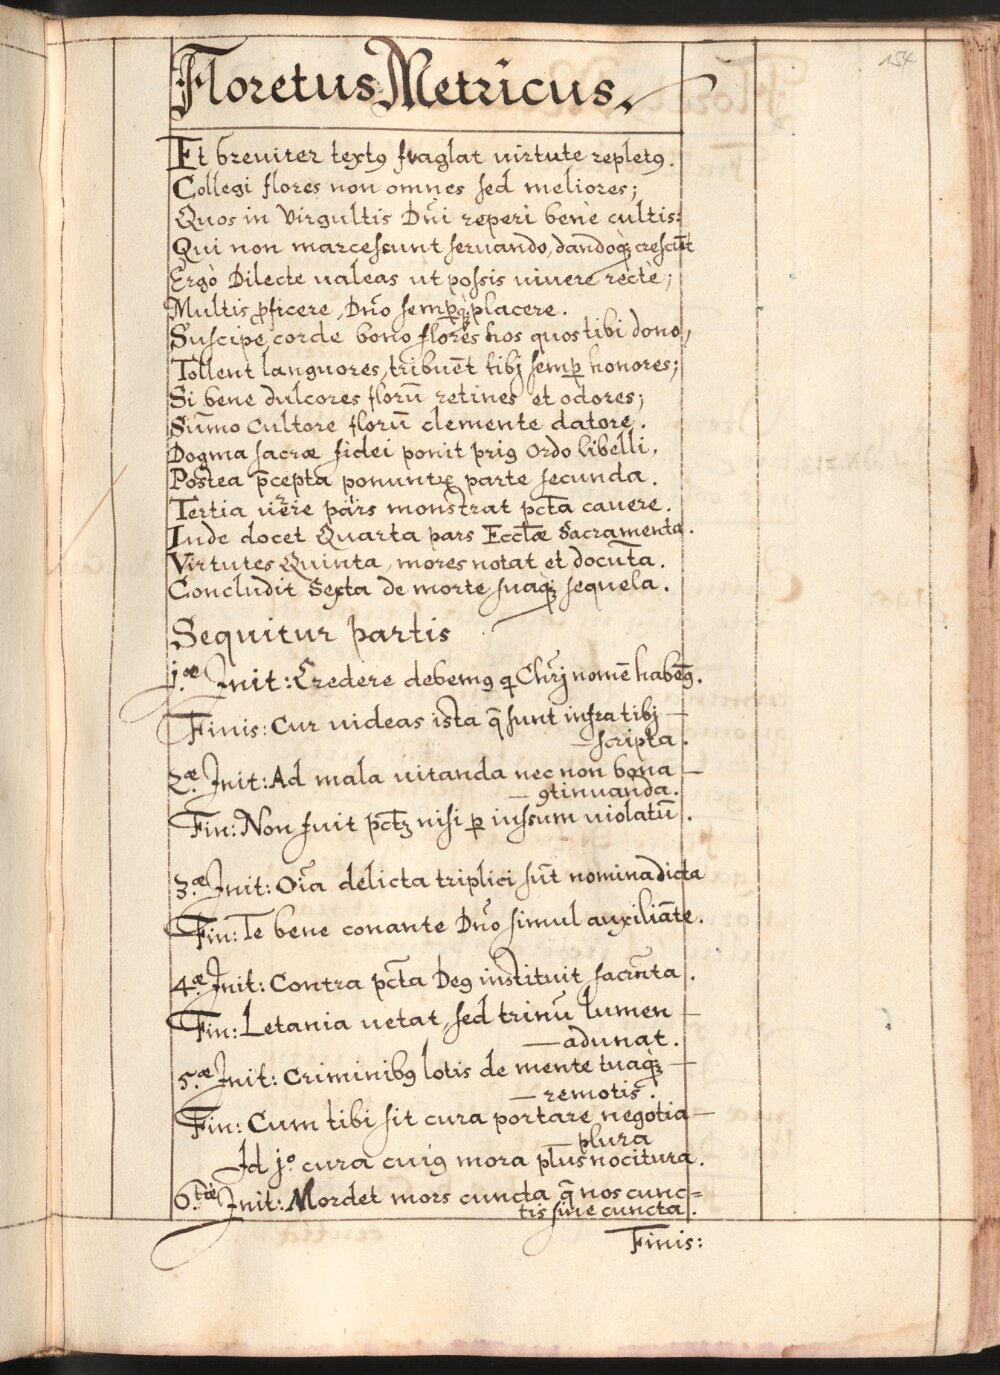 154
Floretus Metricus.
Et breuiter textꝰ fraglat uirtute repletꝰ.
Collegi flores non omnes sed meliores;
Quos in Virgultis Dn̄i reperi benè cultis:
Qui non marcessunt seruando, dandoqꝫ crescūt
Ergò Dilecte ualeas ut possis uiuere rectè;
Multis ꝓficere, Dn̄o semꝑqꝫ placere.
Suscipe corde bono flores hos quos tibi dono,
Tollent languores, tribuēt tibj semꝑ honores;
Si bene dulcores florū retines et odores;
Sūmo Cultore florū clemente datore.
Dogma sacræ fidei ponit priꝰ Ordo libelli,
Postea p̄cepta ponuntꝶ parte secunda.
Tertia uerè pars monstrat pctā cauere.
Inde docet Quarta pars Ecctæ Sacramenta.
Virtutes Quinta, mores notat et docum̄ta.
Concludit Sexta de morte suaqꝫ sequela.
Sequitur partis
j.æ Init: Credere debemꝰ q Chr̄j nomē habēꝰ.
Finis: Cur uideas ista q̄ sunt infra tibj —
— scripta.
2.æ Init: Ad mala uitanda nec non bona —
— ꝯtinuanda.
Fin: Non fuit pctꝫ nisi ꝑ iussum uiolatū.
3.æ Init: Oīa delicta triplici sūt nomina dicta
Fin: Te bene conante Dn̄o simul auxiliāte.
4.æ Init: Contra pctā Deꝰ instituit sacrāta.
Fin: Letania uetat, sed trinū lumen —
— adunat.
5.æ Init: Criminibꝰ lotis de mente tuaqꝫ —
— remotis.
Fin: Cum tibi sit cura portare negotia —
— plura
Id j.o cura cuiꝰ mora plus nocitura.
6.tæ Init: Mordet mors cuncta q̄ nos cunc=
tis sine cuncta.
Finis: